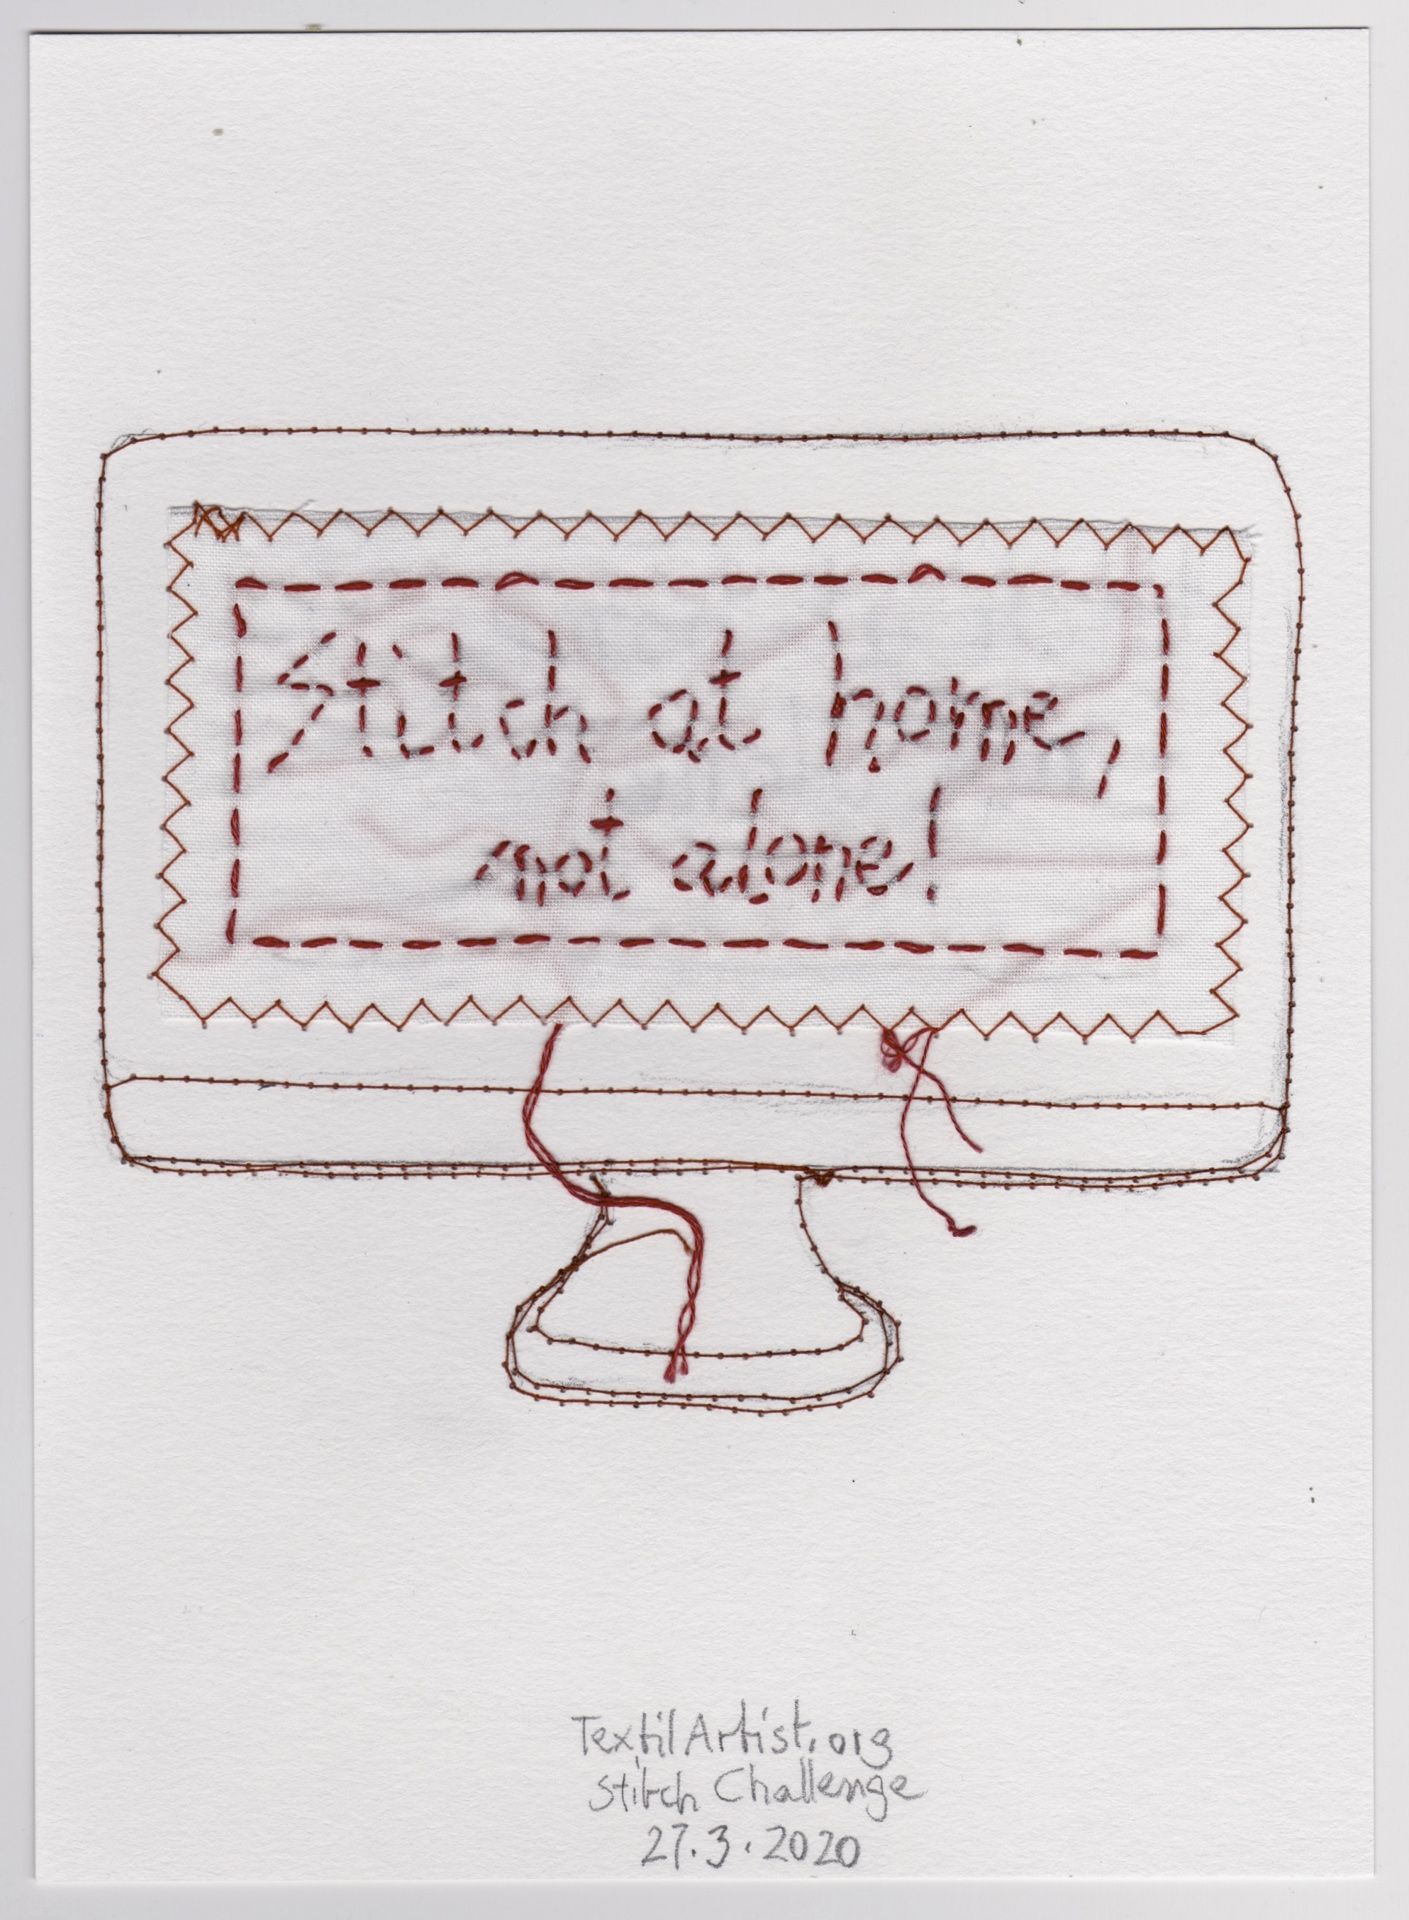 Stitch at home,
not alone!
TextilArtist.org
Stitch Challenge
27.3.2020